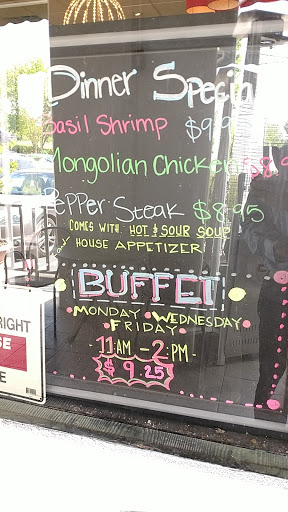 Dinner Speci
Basil Shrimp $9.9
Mongolian Chicken $8.9
Pepper Steak $8.95
COMES WITH HOT & SOUR SOUP
HOUSE APPETIZER
BUFFET
MONDAY • WEDNESDAY •
• FRIDAY •
11AM - 2 PM -
$9.25
RIGHT
SE
E